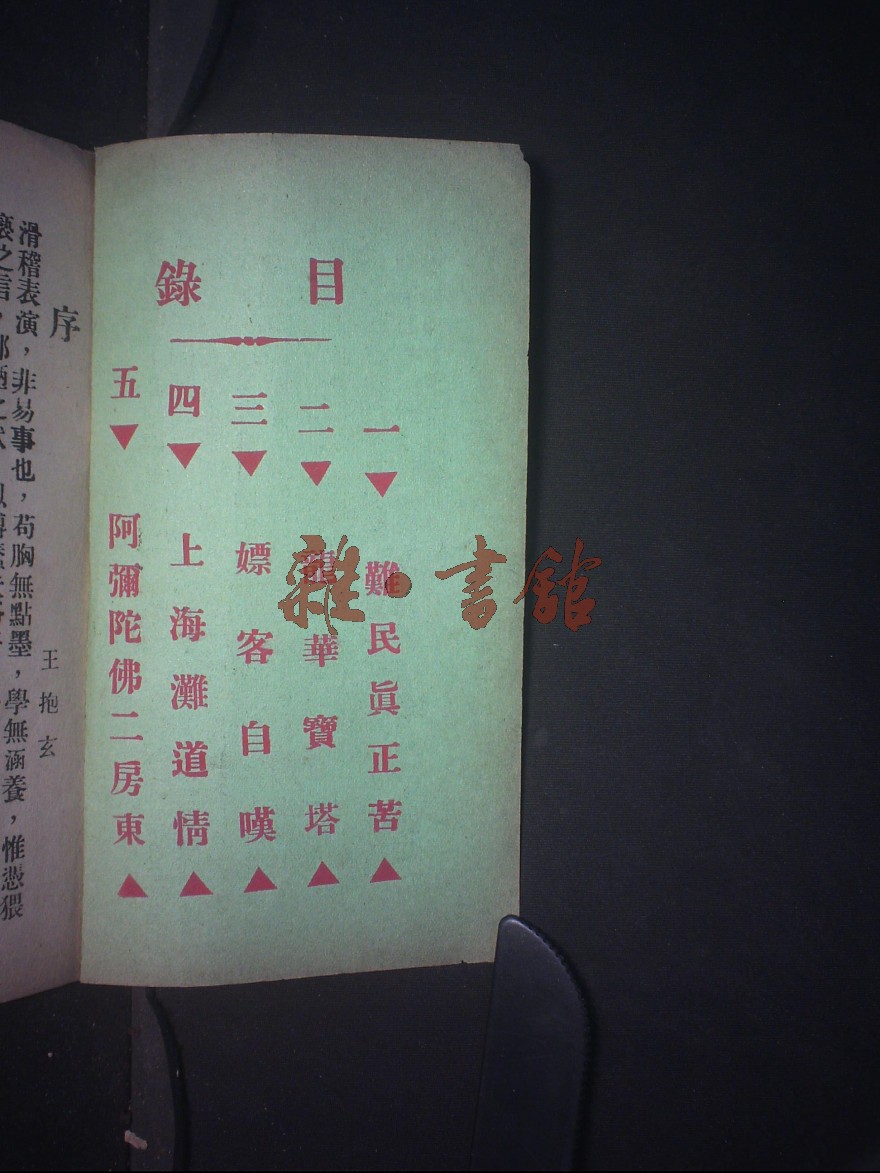 目錄
一 難民眞正苦
二 龍華寶塔
三 嫖客自嘆
四 上海灘道情
五 阿彌陀佛二房東
序
王抱玄
滑稽表演，非易事也，苟胸無點墨，學無涵養，惟憑猥
褻之言，
雜·書館